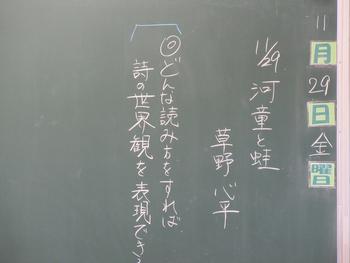 11月29日金曜
11/29 河童と蛙
草野心平
◎どんな読み方をすれば
詩の世界観を表現でき